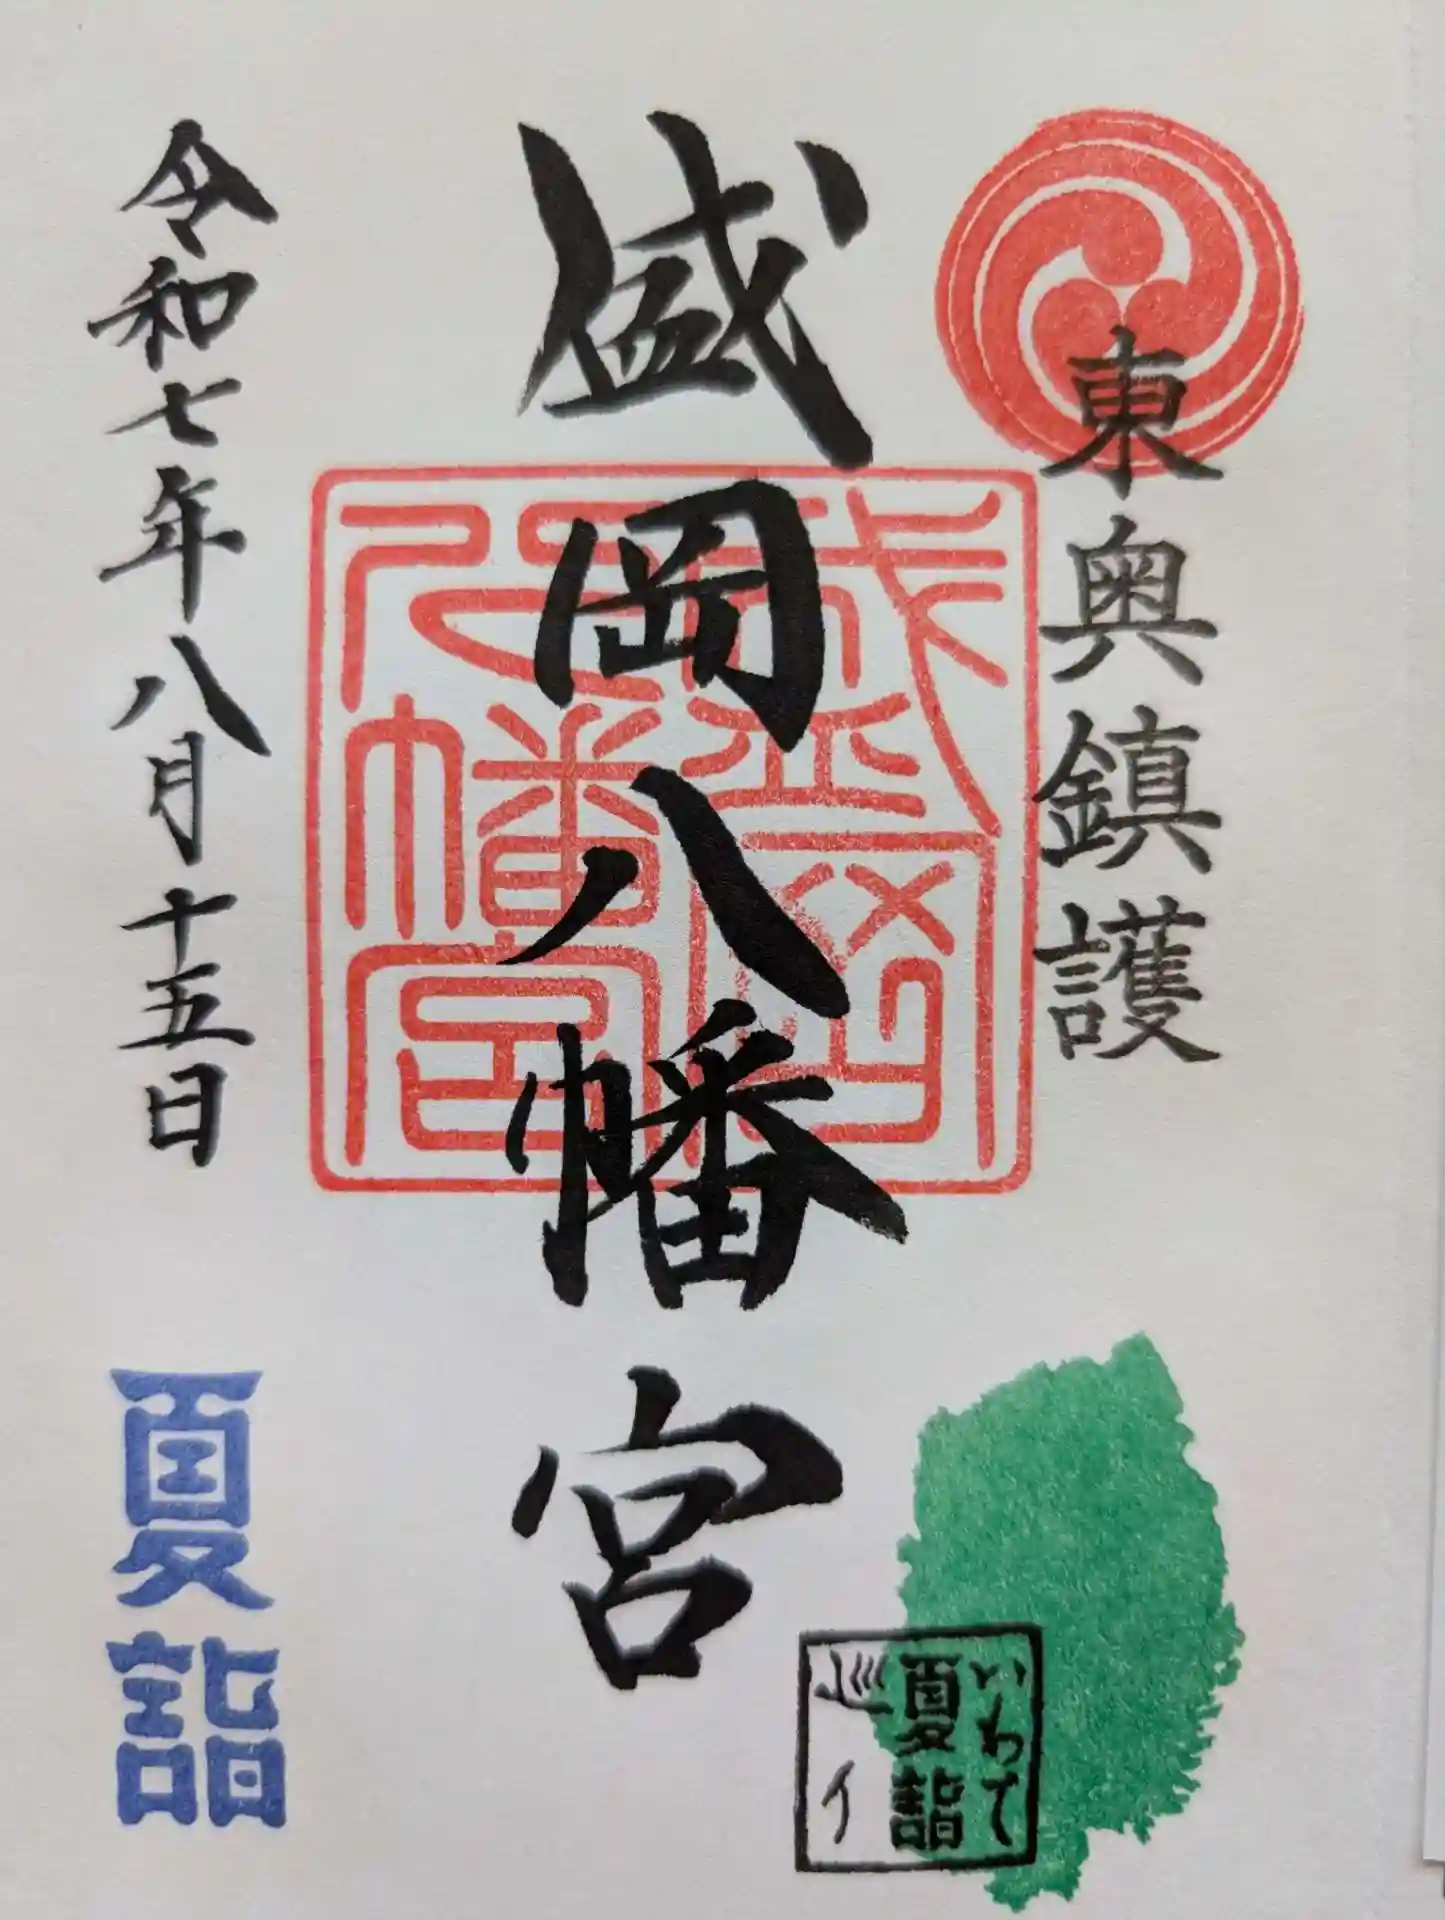 東奥鎮護
盛岡八幡宮
盛岡
八幡宮
令和七年八月十五日
夏詣
いわて
夏詣
巡り